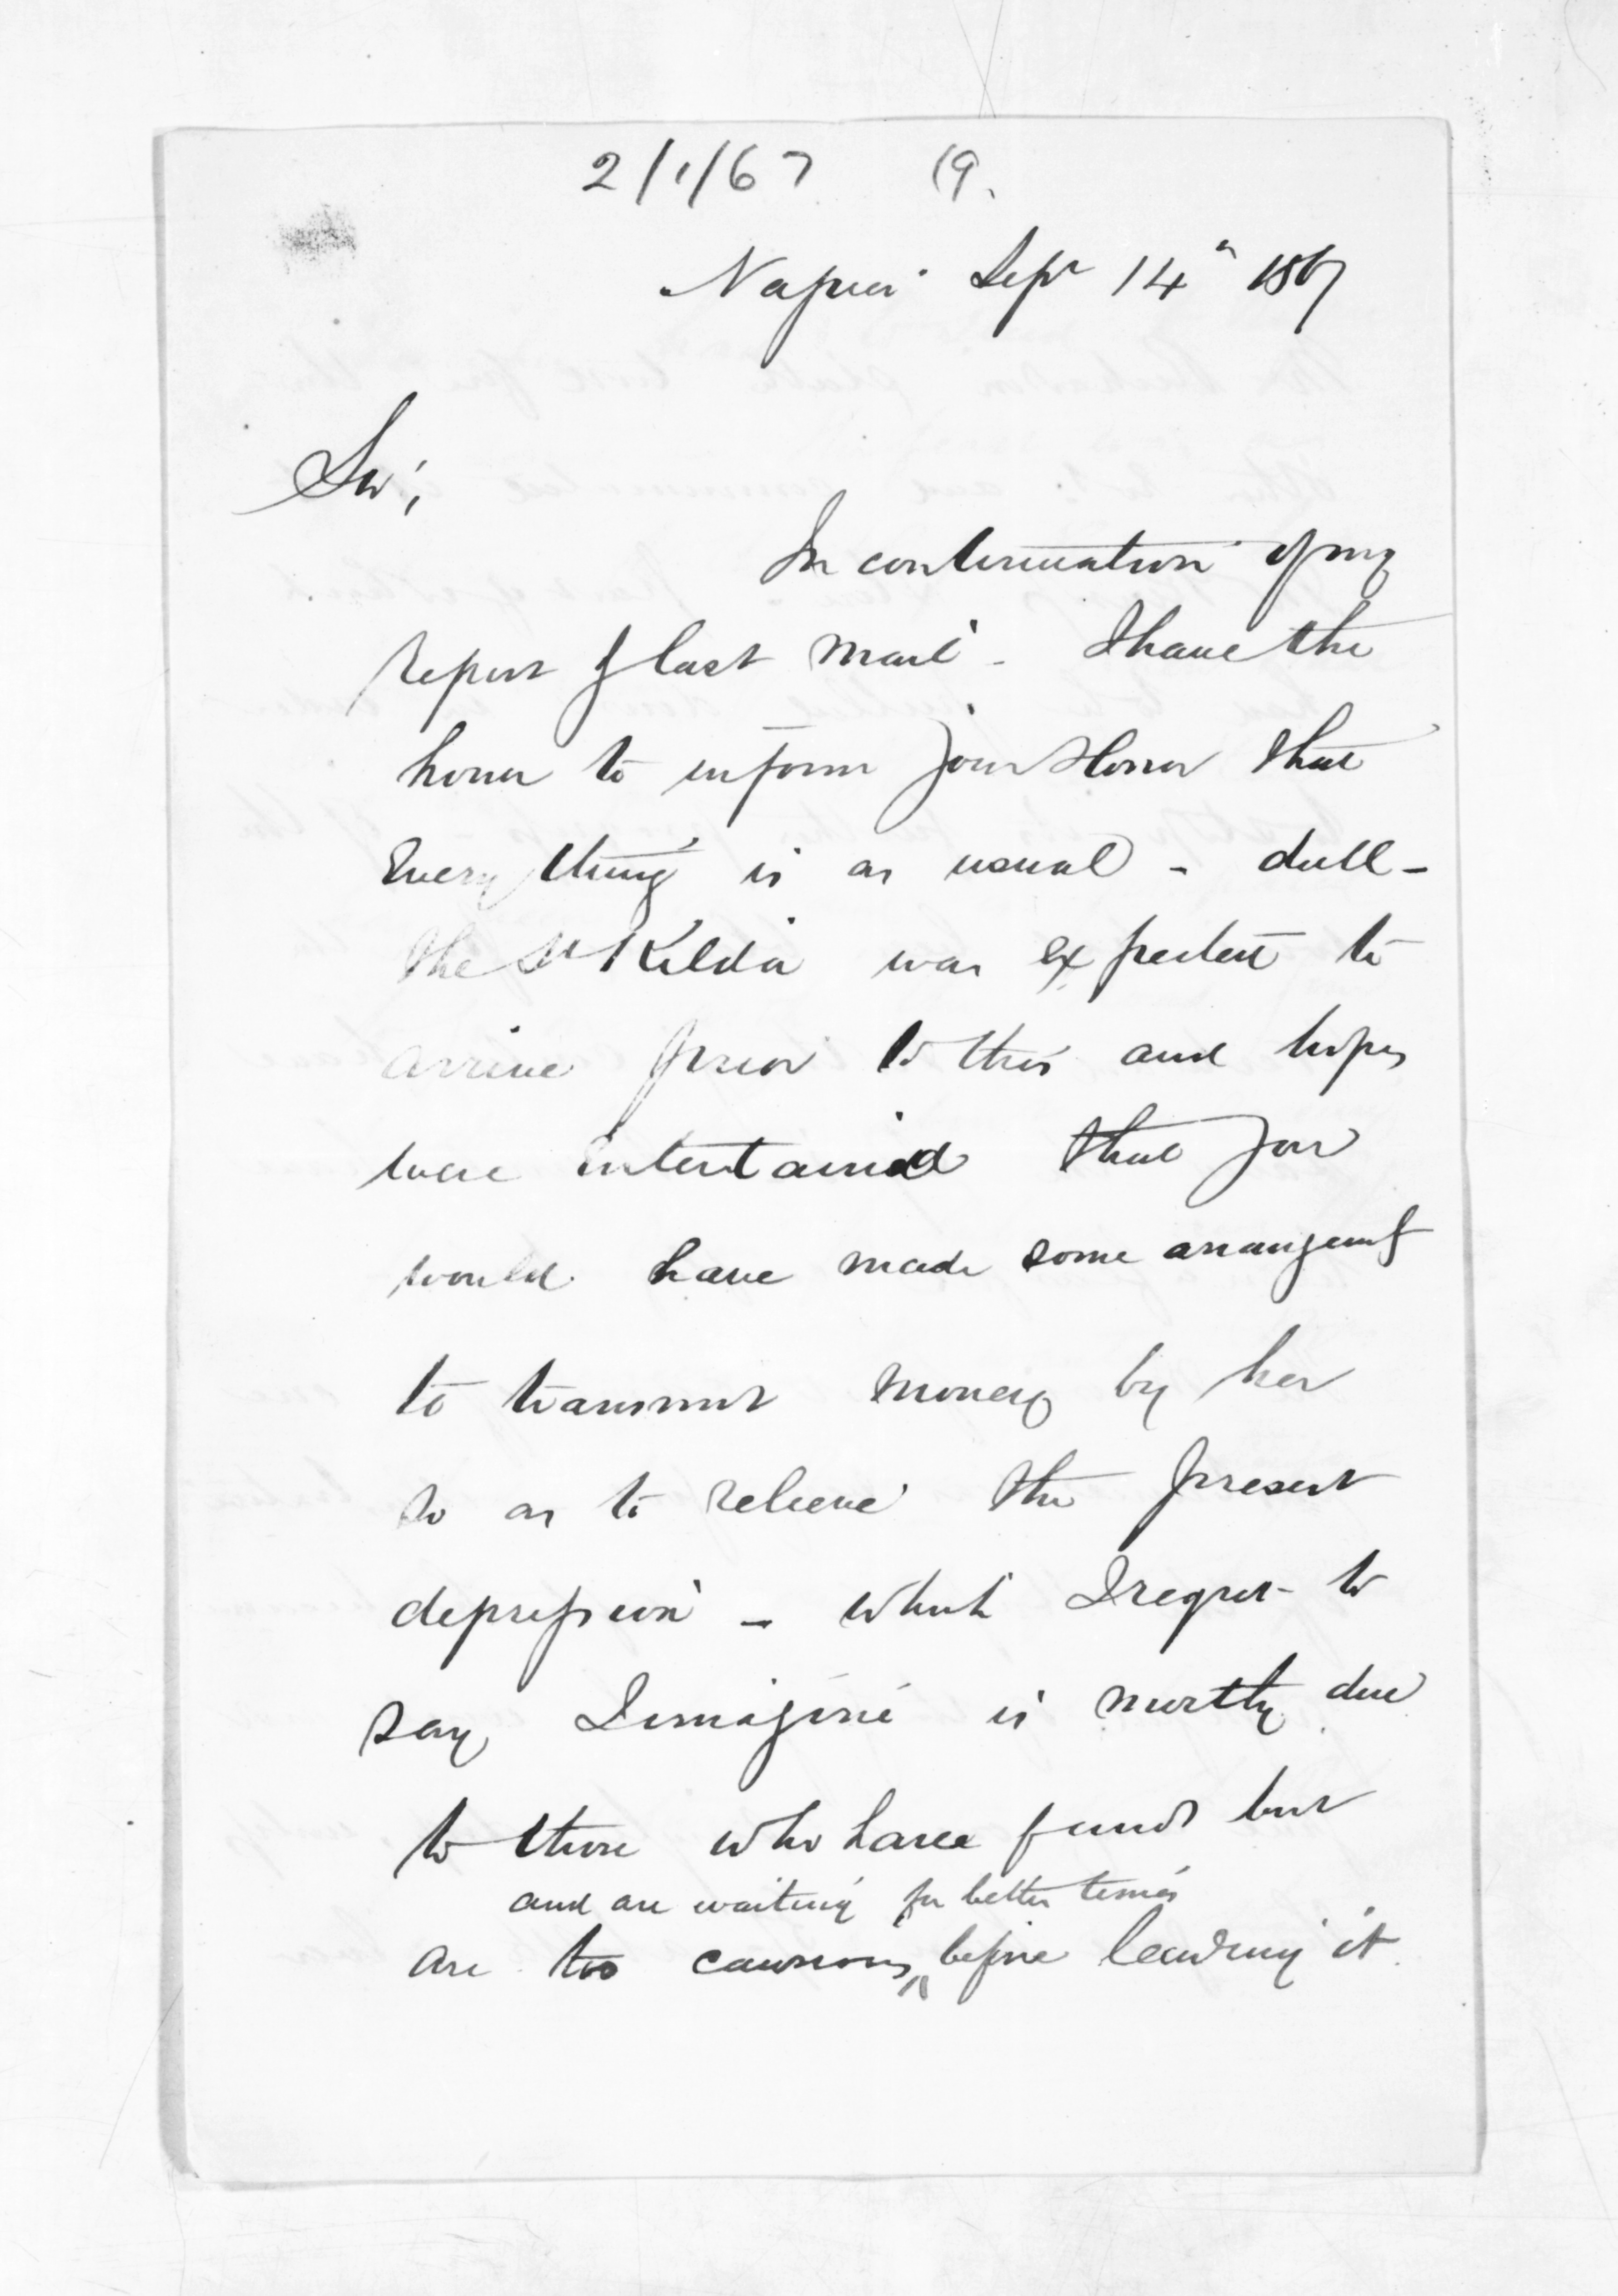 2/1/67 (9.
Napier Sept 14" 1867
Sir,
In continuation of my
report of last mail - I have the
honor to inform your Honor that
Every thing is as usual - dull -
the St Kilda was expected to
arrive prior to this and hopes
were entertained that you
would have made some arrangemts
to transmit money by her
so as to relieve the present
depression - which I regret to
say I imagine is mostly due
to those who have funds but
and are waiting for better times
are too cautious before lending it